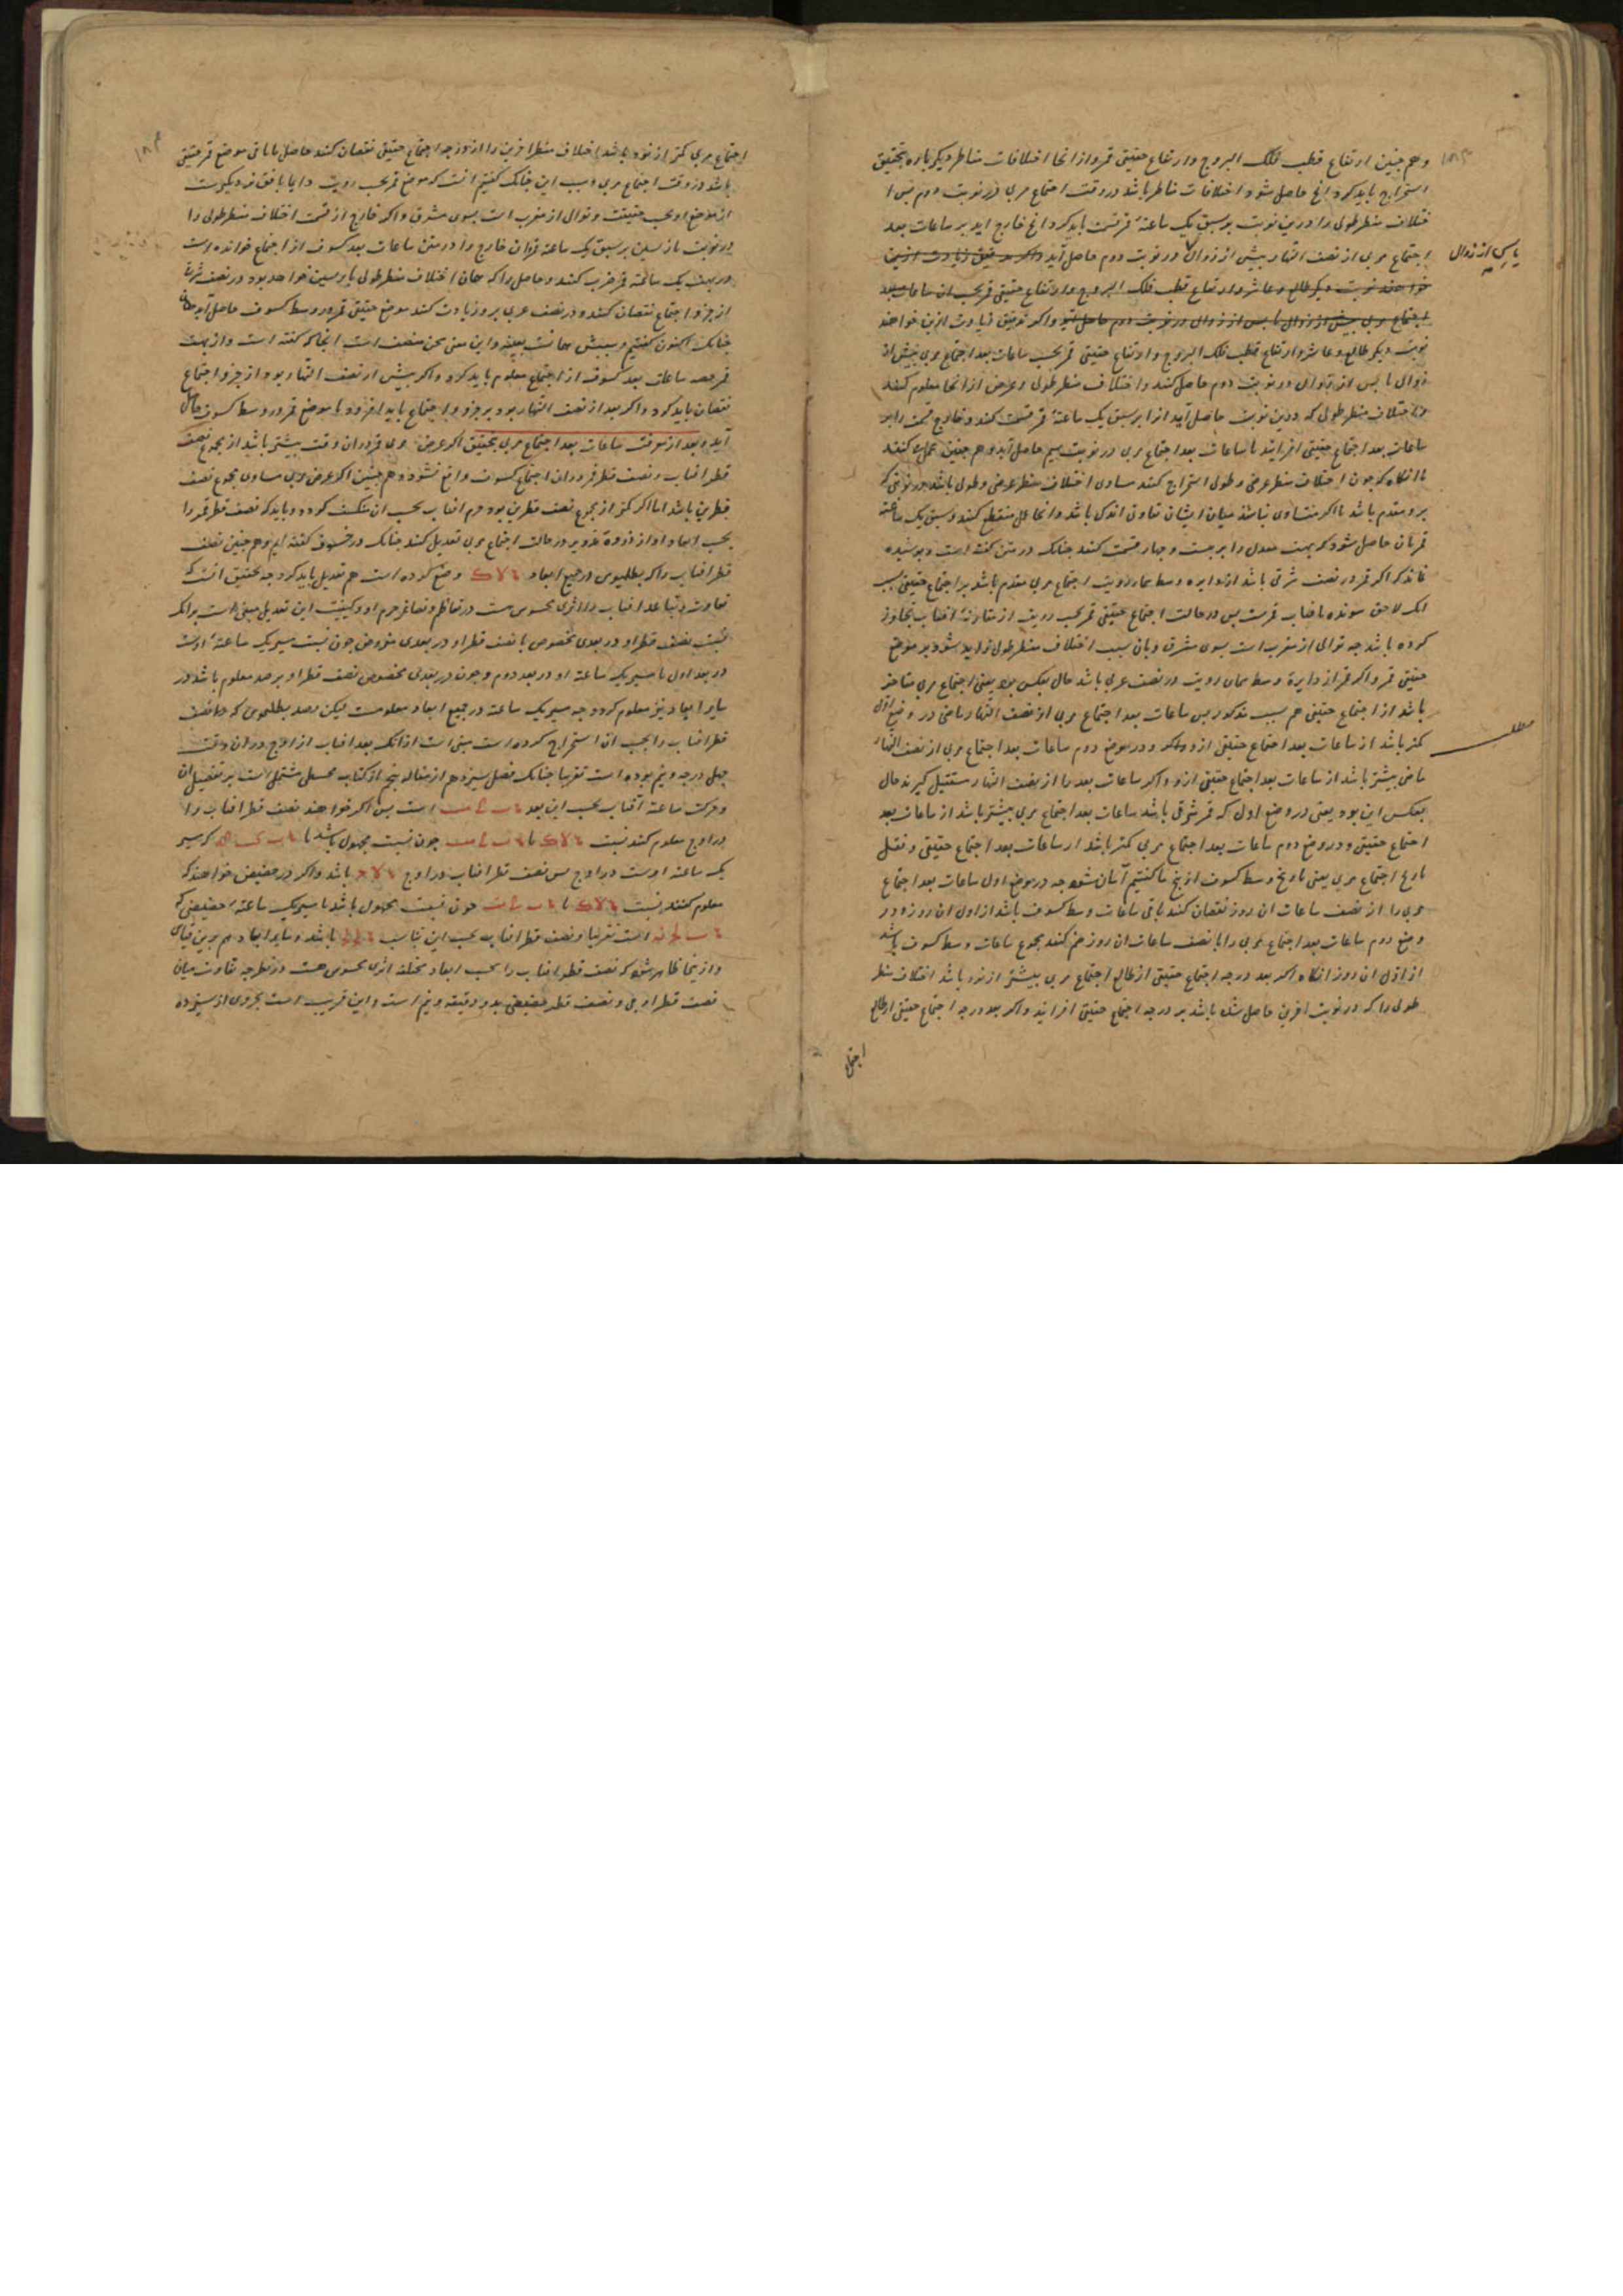 و هم چنین ارتفاع قطب فلک البروج و ارتفاع حقیقی قمر و از انجا اختلافات مناظر دیکر باره بتحقیق
استخراج باید کرد انچ حاصل شود اختلافات مناظر باشد در وقت اجتماع مریی در نوبت دوم پس ا
ختلاف منظر طولی را درین نوبت بر سبق یک ساعتهٔ قمر قسمت باید کرد انچ خارج اید بر ساعات بعد
اجتماع مریی از نصف النهار پیش از زوال در نوبت دوم حاصل آید واکر تدقیق زیادت ازین
یا پس از زوال
خواهند نوبت دیکر طالع و عاشر و ارتفاع قطب فلک البروج و ارتفاع حقیقی قمر بحسب ان ساعات بعد
اجتماع مریی پیش از زوال یا پس از زوال در نوبت دوم حاصل آید واکر تدقیق زیادت ازین خواهند
نوبت دیکر طالع و عاشر و ارتفاع قطب فلک البروج و ارتفاع حقیقی قمر بحسب ساعات بعد اجتماع مریی پیش از
زوال یا پس از زوال در نوبت دوم حاصل کنند و اختلاف منظر طولی و عرض از انجا معلوم کنند
اختلاف منظر طولی که درین نوبت حاصل آید از ابر سبق یک ساعتهٔ قمر قسمت کنند و خارج قسمت را بر
ساعات بعد اجتماع حقیقی افزایند تا ساعات بعد اجتماع مریی در نوبت سیم حاصل آید و هم چنین عمل کنند
تا انکاه که چون اختلاف منظر عرضی و طولی استخراج کنند مساوی اختلاف منظر عرضی و طولی باشد در نوبتی که
برو مقدم باشد یا اکر متساوی نباشد میان ایشان تفاوتی اندک باشد و انجا عمل منقطع کنند و سبق یک ساعته
قمر بان حاصل شود که بهت معدل را بر بیست و چهار قسمت کنند چنانک در متن کفته است و پوشیده
نماند که اکر قمر در نصف شرقی باشد از دایره وسط سماء رویت اجتماع مریی مقدم باشد بر اجتماع حقیقی بسبب
انک لاحق شونده بافتاب قمرست پس در حالت اجتماع حقیقی قمر بحسب رویت از مقارنهٔ افتاب تجاوز
کرده باشد چه توالی از مغرب است بسوی مشرق و بان سبب اختلاف منظر طولی زاید شود بر موضع
حقیقی قمر و اکر قمر از دایرهٔ وسط سماء رویت در نصف غربی باشد حال بعکس بود یعنی اجتماع مریی متاخر
باشد از اجتماع حقیقی هم بسبب مذکور پس ساعات بعد اجتماع مریی از نصف النهار ماضی در وضع اول
کمتر باشد از ساعات بعد اجتماع حقیقی ازو و در موضع دوم ساعات بعد اجتماع مریی از نصف النهار
مطلب
ماضی بیشتر باشد از ساعات بعد اجتماع حقیقی ازو و اکر ساعات بعد را از نصف النهار مستقبل کیرند حال
بعکس این بود یعنی در وضع اول که قمر شرقی باشد ساعات بعد اجتماع مریی بیشتر باشد از ساعات بعد
اجتماع حقیقی و در وضع دوم ساعات بعد اجتماع مریی کمتر باشد از ساعات بعد اجتماع حقیقی و نقل
تاریخ اجتماع مریی یعنی تاریخ وسط کسوف از نچ ما کفتیم آسان شود چه در موضع اول ساعات بعد اجتماع
مریی را از نصف ساعات ان روز نقصان کنند باقی ساعات وسط کسوف باشد از اول ان روز و در
وضع دوم ساعات بعد اجتماع مریی را با نصف ساعات ان روز ضم کنند مجموع ساعات وسط کسوف باشد
از اول ان روز انکاه اکر بعد درجه اجتماع حقیقی از طالع اجتماع مریی بیشتر از نود باشد اختلاف منظر
طولی را که در نوبت اخرین حاصل شده باشد بر درجه اجتماع حقیقی افزایند و اکر بعد درجه اجتماع حقیقی از طالع
اجتماع مریی کمتر از نود باشد اختلاف منظر اخرین را از درجه اجتماع حقیقی نقصان کنند حاصل یا باقی موضع قمر حقیقی
باشد در وقت اجتماع مریی و سبب این چنانک کفتیم انست که موضع قمر بحسب رویت دایما بافق نزدیکترست
از موضع او بحسب حقیقت و توالی از مغرب است بسوی مشرق و اکر خارج از قسمت اختلاف منظر طولی را
در نوبت بازپسین بر سبق یک ساعته قمر ان خارج را در متن ساعات بعد کسوف از اجتماع خوانده است
در بهت یک ساعته قمر ضرب کنند و حاصل را که همان اختلاف منظر طولی بازپسین خواهد بود در نصف شرقی
از جزو اجتماع نقصان کنند و در نصف غربی برو زیادت کنند موضع حقیقی قمر در وسط کسوف حاصل آید همان
چنانک اکنون کفتیم و سببش همانست بعینه و این معنی متن مصنف است انجا که کفته است و از بهت
قمر حصه ساعات بعد کسوف از اجتماع معلوم باید کرد و اکر پیش از نصف النهار بود از جزو اجتماع
نقصان باید کرد و اکر بعد از نصف النهار بود بر جزو اجتماع باید افزود تا موضع قمر در وسط کسوف حاصل
آید و بعد از معرفت ساعات بعد اجتماع مریی بتحقیق اکر عرض مریی قمر در ان وقت بیشتر باشد از مجموع نصف
قطر افتاب و نصف قطر قمر در ان اجتماع کسوف واقع نشود و هم چنین اکر عرض مریی مساوی مجموع نصف
قطرین باشد اما اکر کمتر از مجموع نصف قطرین بود جرم افتاب بحسب ان منکسف کردد و باید که نصف قطر قمر را
بحسب ابعاد او از ذروهٔ تدویر در حالت اجتماع مریی تعدیل کنند چنانک در خسوف کفته ایم و هم چنین نصف
قطر افتاب را که بطلیموس در جمیع ابعاد وضع کرده است هم تعدیل باید کرد چه تحقیق انست که
تفاوت تباعد افتاب را اثری محسوس هست در تعاظم و تصاغر جرم او و کیفیت این تعدیل مبنی است برانک
نسبت نصف قطر او در بعدی مخصوص با نصف قطر او در بعدی مفروض چون نسبت مسیر یک ساعتهٔ اوست
در بعد اول با مسیر یک ساعته او در بعد دوم و چون در بعدی مخصوص نصف قطر او برصد معلوم باشد در
سایر ابعاد نیز معلوم کردد چه مسیر یک ساعته در جمیع ابعاد معلومست لیکن رصد بطلیموس که نصف
قطر افتاب را بحسب ان استخراج کرده است مبنی است از انک بعد افتاب از اوج در ان وقت
چهل درجه و نیم بوده است تقریبا چنانک فصل سیزدهم از مقاله پنجم از کتاب مجسطی مشتمل است بر تفصیل ان
و حرکت ساعته آفتاب بحسب این بعد است پس اکر خواهند نصف قطر افتاب را
در اوج معلوم کنند نسبت با چون نسبت مجهول باشد با که مسیر
یک ساعته اوست در اوج پس نصف قطر افتاب در اوج باشد و اکر در حضیض خواهند که
معلوم کنند نسبت با چون نسبت مجهول باشد با مسیر یک ساعتهٔ حضیضی که
است تقریبا و نصف قطر افتاب بحسب این تناسب باشد و سایر ابعاد هم برین قیاس
و از ینجا ظاهر شود که نصف قطر افتاب را بحسب ابعاد مختلفه اثری محسوس هست در نظر چه تفاوت میان
نصف قطر اوجی و نصف قطر حضیضی بدو دقیقه و نیم است و این قریب است بجزوی از سیزده